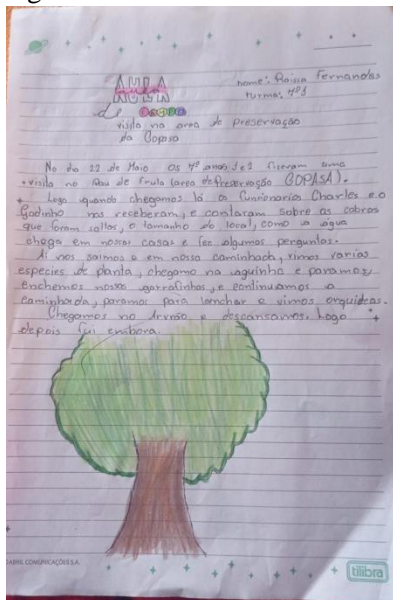 AULA
de CAMPO
nome: Raissa Fernandes
turma: 7º1
visita na area de preservação
da Copasa
No dia 22 de Maio os 7º anos 1 e 2 fizeram uma
visita no Pau de fruta (area de Preservação COPASA).
Logo quando chegamos lá os funcionarios Charles e o
Godinho nos receberam, e contaram sobre as cobras
que foram soltas, o tamanho do local, como a água
chega em nossas casas e fez algumas perguntas.
Ai nos saimos e em nossa caminhada, vimos varias
especies de planta, chegamo na aguinha e paramos,
enchemos nossas garrafinhas, e continuamos a
caminhada, paramos para lanchar e vimos orquideas.
Chegamos no Arvrão e descansamos. Logo
depois fui embora.
COMUNICAÇÕES S.A.
tilibra